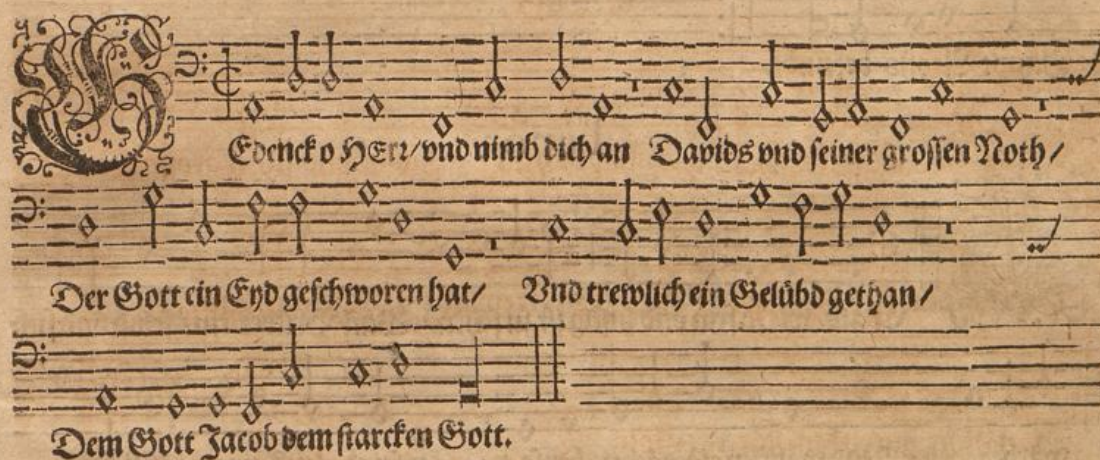 GEdenck o HErr/vnd nimb dich an Davids vnd seiner grossen Noth/
Der Gott ein Eyd geschworen hat/ Vnd trewlich ein Gelübd gethan/
Dem Gott Jacob dem starcken Gott.